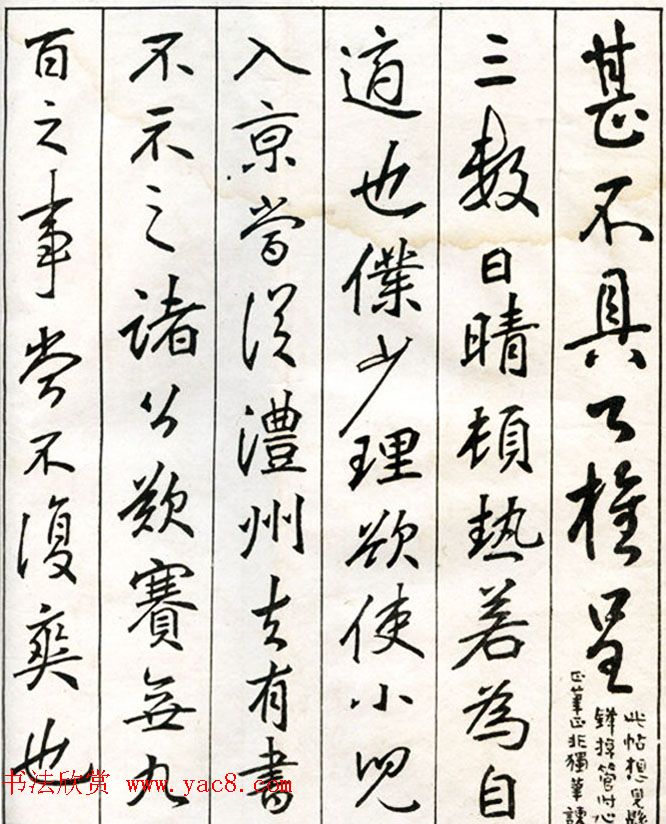 甚不具公權呈
此帖想見懸
鋒操管時心
正筆正非獨筆諫
三數日晴頓熱若為自
適也僕少理欲使小兒
入京當從澧州去有書
不示之諸公欵賽無九
百之事當不復爽也
书法欣赏 www.yac8.com